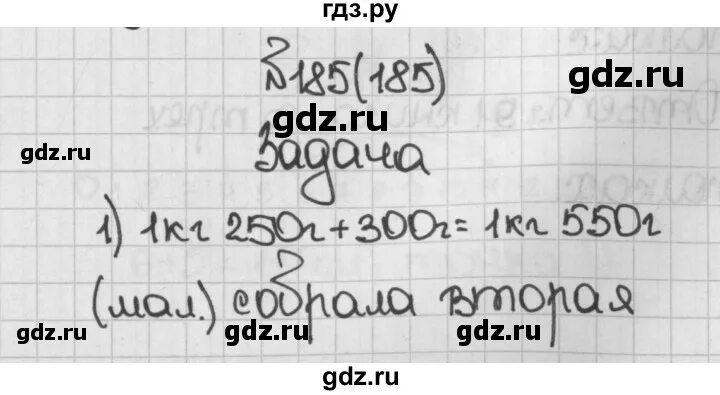 гдз.ру
№185(185)
gdz.ru
gdz.ru
gdz.ru
Задача
1) 1кг 250г+300г=1кг 550г
(мал.) собрала вторая
gdz.ru
gdz.ru
gdz.ru
gdz.ru